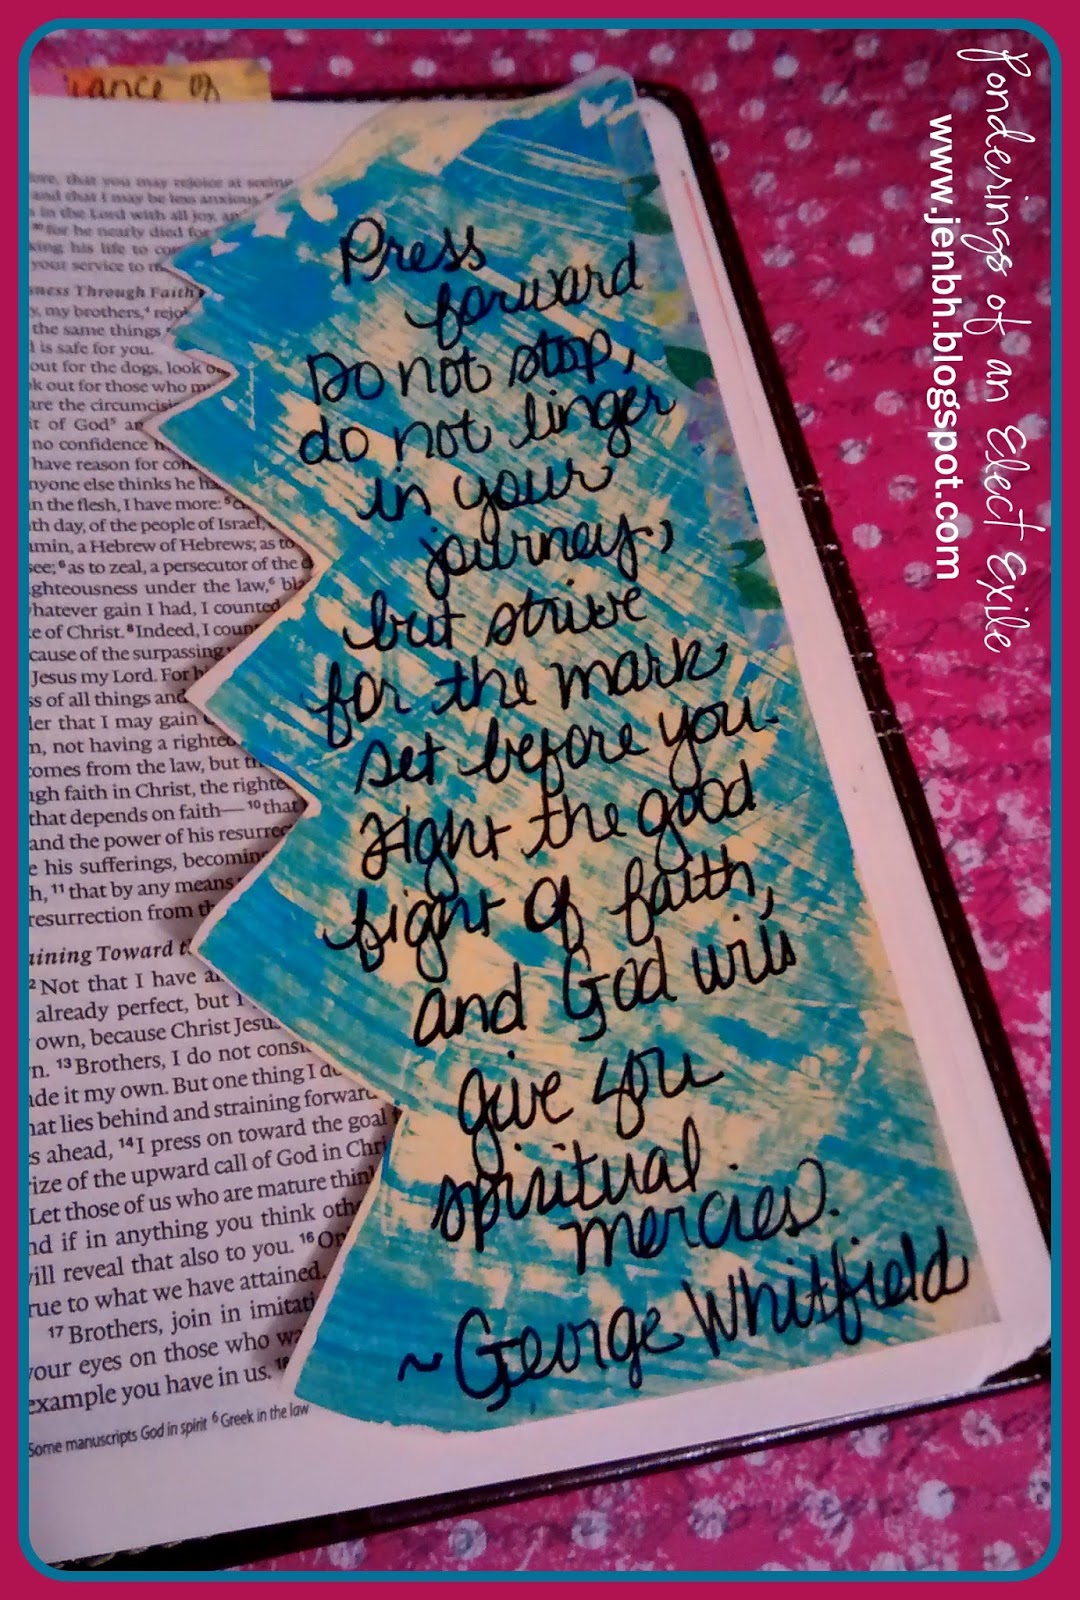 ance of
ove, that you may rejoice at seeing
and that I may be less anxious.
in the Lord with all joy, an
30 for he nearly died for
king his life to com
your service to m
sness Through Faith
y, my brothers,4 rejo
the same things
l is safe for you.
out for the dogs, look o
ok out for those who m
are the circumcis
it of God5 an
no confidence
have reason for con
nyone else thinks he ha
in the flesh, I have more: 5
th day, of the people of Israel,
amin, a Hebrew of Hebrews; as to
see; 6 as to zeal, a persecutor of the
ighteousness under the law,6 bla
hatever gain I had, I counted
ke of Christ. 8 Indeed, I coun
cause of the surpassing
Jesus my Lord. For h
ss of all things and
der that I may gain
n, not having a righteo
comes from the law, but th
ugh faith in Christ, the righte
that depends on faith— 10 that
and the power of his resurrec
e his sufferings, becoming
h, 11 that by any means
resurrection from th
aining Toward t
2 Not that I have a
already perfect, but I
own, because Christ Jesu
n. 13 Brothers, I do not consi
de it my own. But one thing I do
hat lies behind and straining forward
s ahead, 14 I press on toward the goal
rize of the upward call of God in Chri
Let those of us who are mature thin
nd if in anything you think othe
will reveal that also to you. 16 On
rue to what we have attained.
17 Brothers, join in imitati
your eyes on those who wa
example you have in us. 18
Some manuscripts God in spirit 6 Greek in the law
Press
forward
Do not stop,
do not linger
in your
journey,
but strive
for the mark
set before you.
Fight the good
fight of faith,
and God will
give you
spiritual
mercies.
~George Whitfield
Ponderings of an Elect Exile
www.jenbh.blogspot.com